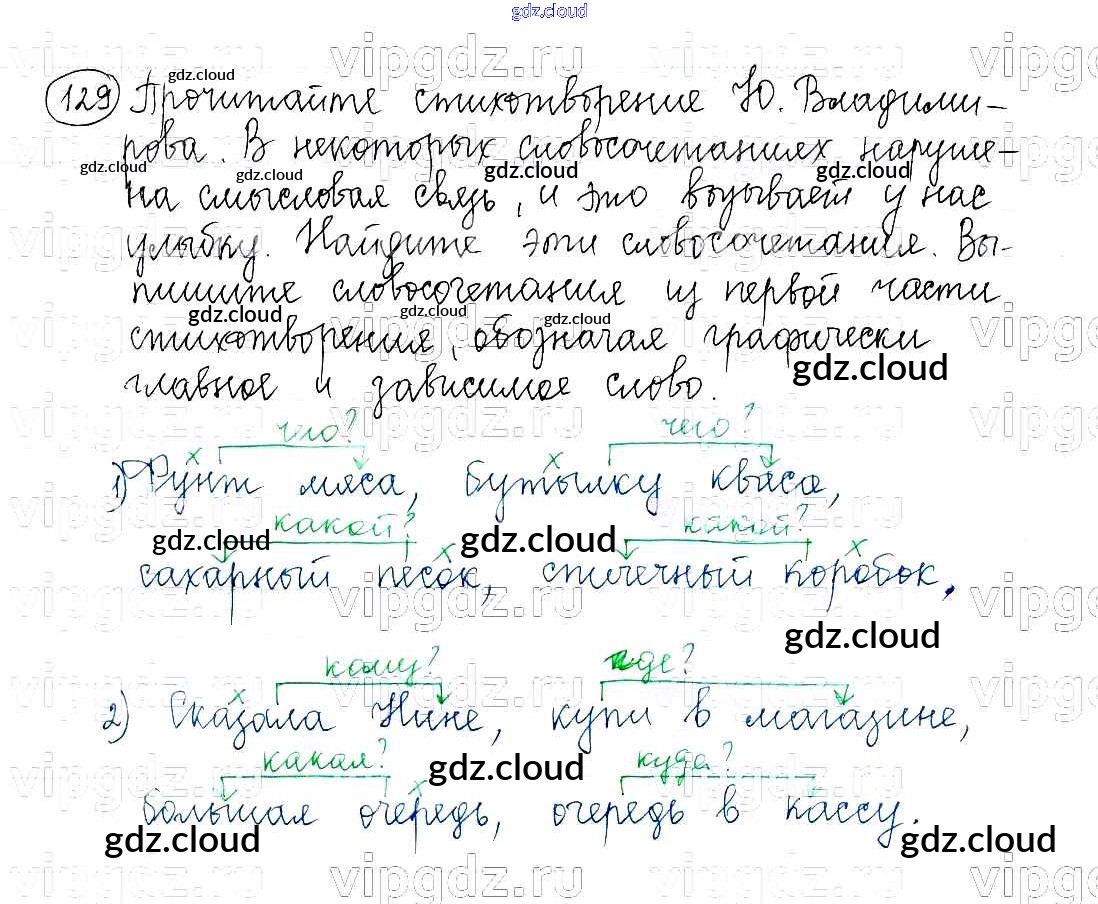 gdz.cloud
129 Прочитайте стихотворение Ю. Владими-
рова. В некоторых словосочетаниях наруше-
на смысловая связь, и это вызывает у нас
улыбку. Найдите эти словосочетания. Вы-
пишите словосочетания из первой части
стихотворения, обозначая графически
главное и зависимое слово.
что? чего?
1) Фунт мяса, бутылку кваса,
какой? какой?
сахарный песок, спичечный коробок,
кому? где?
2) Сказала Нине, купи в магазине,
какая? куда?
большая очередь, очередь в кассу.